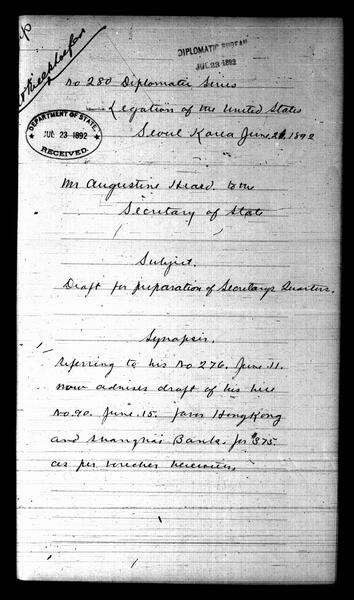 DIPLOMATIC BUREAU
JUL 23 1892
No 280 Diplomatic Series
Legation of the United States
Seoul Korea June 21, 1892
DEPARTMENT OF STATE,
JUL 23 1892
RECEIVED.
Mr Augustine Heard, to the
Secretary of State
Subject.
Draft for preparation of Secretarys Quarters.
Synopsis.
Referring to his No 276. June 11.
now advises draft of his here
No. 90. June. 15. favor HongKong
and Shanghai Bank. for $375
as per voucher herewith.